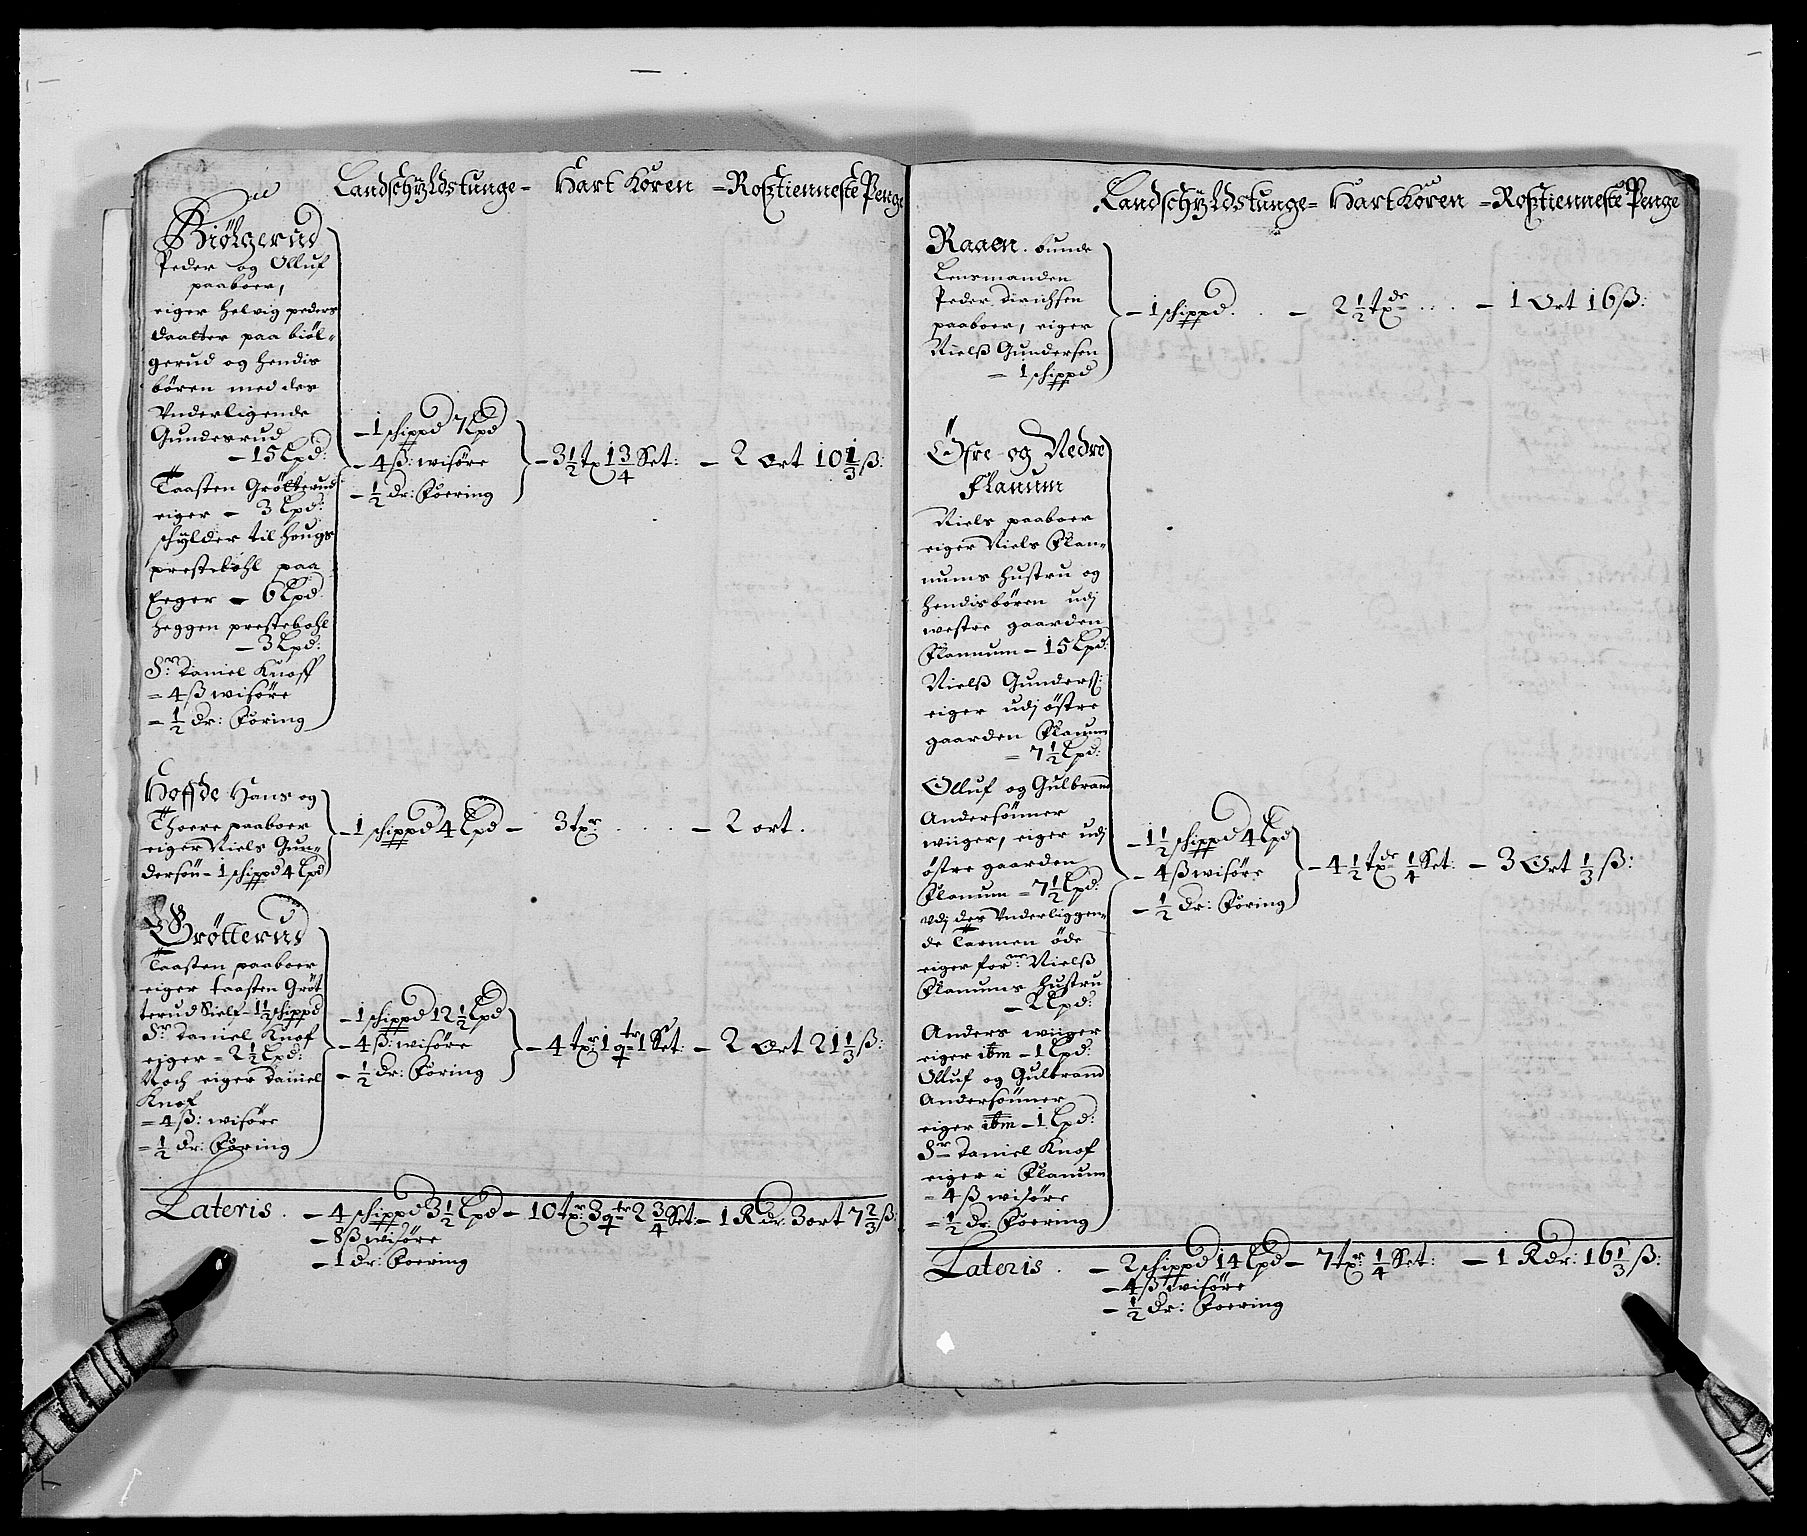 Landschÿldstunge - Hart Koren - Rosztienneste Penge
Biölgerud
Peder og Olluf
paaboer,
eiger helvig peders
daatter paa biöl-
gerud og hendis
bören med des
Underligende
Gundesrud
- 15 Lpd:
Taasten Grötterud
eiger - 3 Lpd:
schÿlder til hougs
prestebohl paa
Eeger - 6 Lpd
heggen prestebohl
- 3 Lpd:
Sr. Daniel Knoff
- 4 ß wisöre
- ½ dr: Foring
- 1 schippd 7 Lpd
- 4 ß: wisöre
- ½ dr: Foering
- 3½ tø 1¾ Set: - 2 Ort 10⅓ ß:
Hoffde Hans og
Thoere paaboer
eiger Niels Gun-
dersön - 1 schippd 4 Lpd
- 1 schippd 4 Lpd - 3 tør - 2 ort.
Gröttterud
Taasten paaboer
eiger taasten Gröt
terud Sielf - 1½ schippd
Sr. Daniel Knof
eiger - 2½ Lpd:
Noch eiger Daniel
Knof
- 4 ß: wisöre
- ½ dr: Foring
- 1 schippd 12½ Lpd
- 4 ß: wisöre
- ½ dr: Foring
- 4 tør 1 qtr 1 Set: - 2 Ort 21⅓ ß:
Lateris. - 4 schippd 3½ Lpd - 10 tør 3 qtr 2¾ Set: - 1 Rdr: 3 ort 7⅔ ß:
- 8 ß wisöre
- 1 dr: Foering
Landschÿldstunge - Hart Koren - Rosztienneste Penge
Raaen. bunde
Lensmanden
Peder Dirichsen
paaboer, eiger
Nielß Gundersen
- 1 schippd
- 1 schippd. - 2½ tøde - 1 Ort 16 ß:
Öfre og Nedre
Flanum
Niels paaboer
eiger Niels Flan-
nums hustru og
hendis bören udj
westre gaarden
Flannum - 15 Lpd:
Nielß Gunders:
eiger udj östre
gaarden Flanum
- 7½ Lpd:
Olluf og Gulbrand
Andersönner
wiiger, eiger udj
östre gaarden
Flanum - 7½ Lpd:
udj des Underliggen-
de Tarmen öde
eiger for:ne Nielß
Flanums hustru
- 2 Lpd:
Anders wiiger
eiger ibm - 1 Lpd:
Olluf og Gulbrand
Andersönner
eiger ibm - 1 Lpd:
Sr Daniel Knof
eiger i Flanum
- 4 ß wisöre
- ½ dr: Foering
- 1½ schippd 4 Lpd
- 4 ß wisöre
- ½ dr: Foring
- 4½ tøde ¼ Set: - 3 Ort ⅓ ß:
Lateris. - 2 schippd 14 Lpd - 7 tør ¼ Set: - 1 Rdr: 16⅓ ß:
- 4 ß wisöre
- ½ dr: Foering